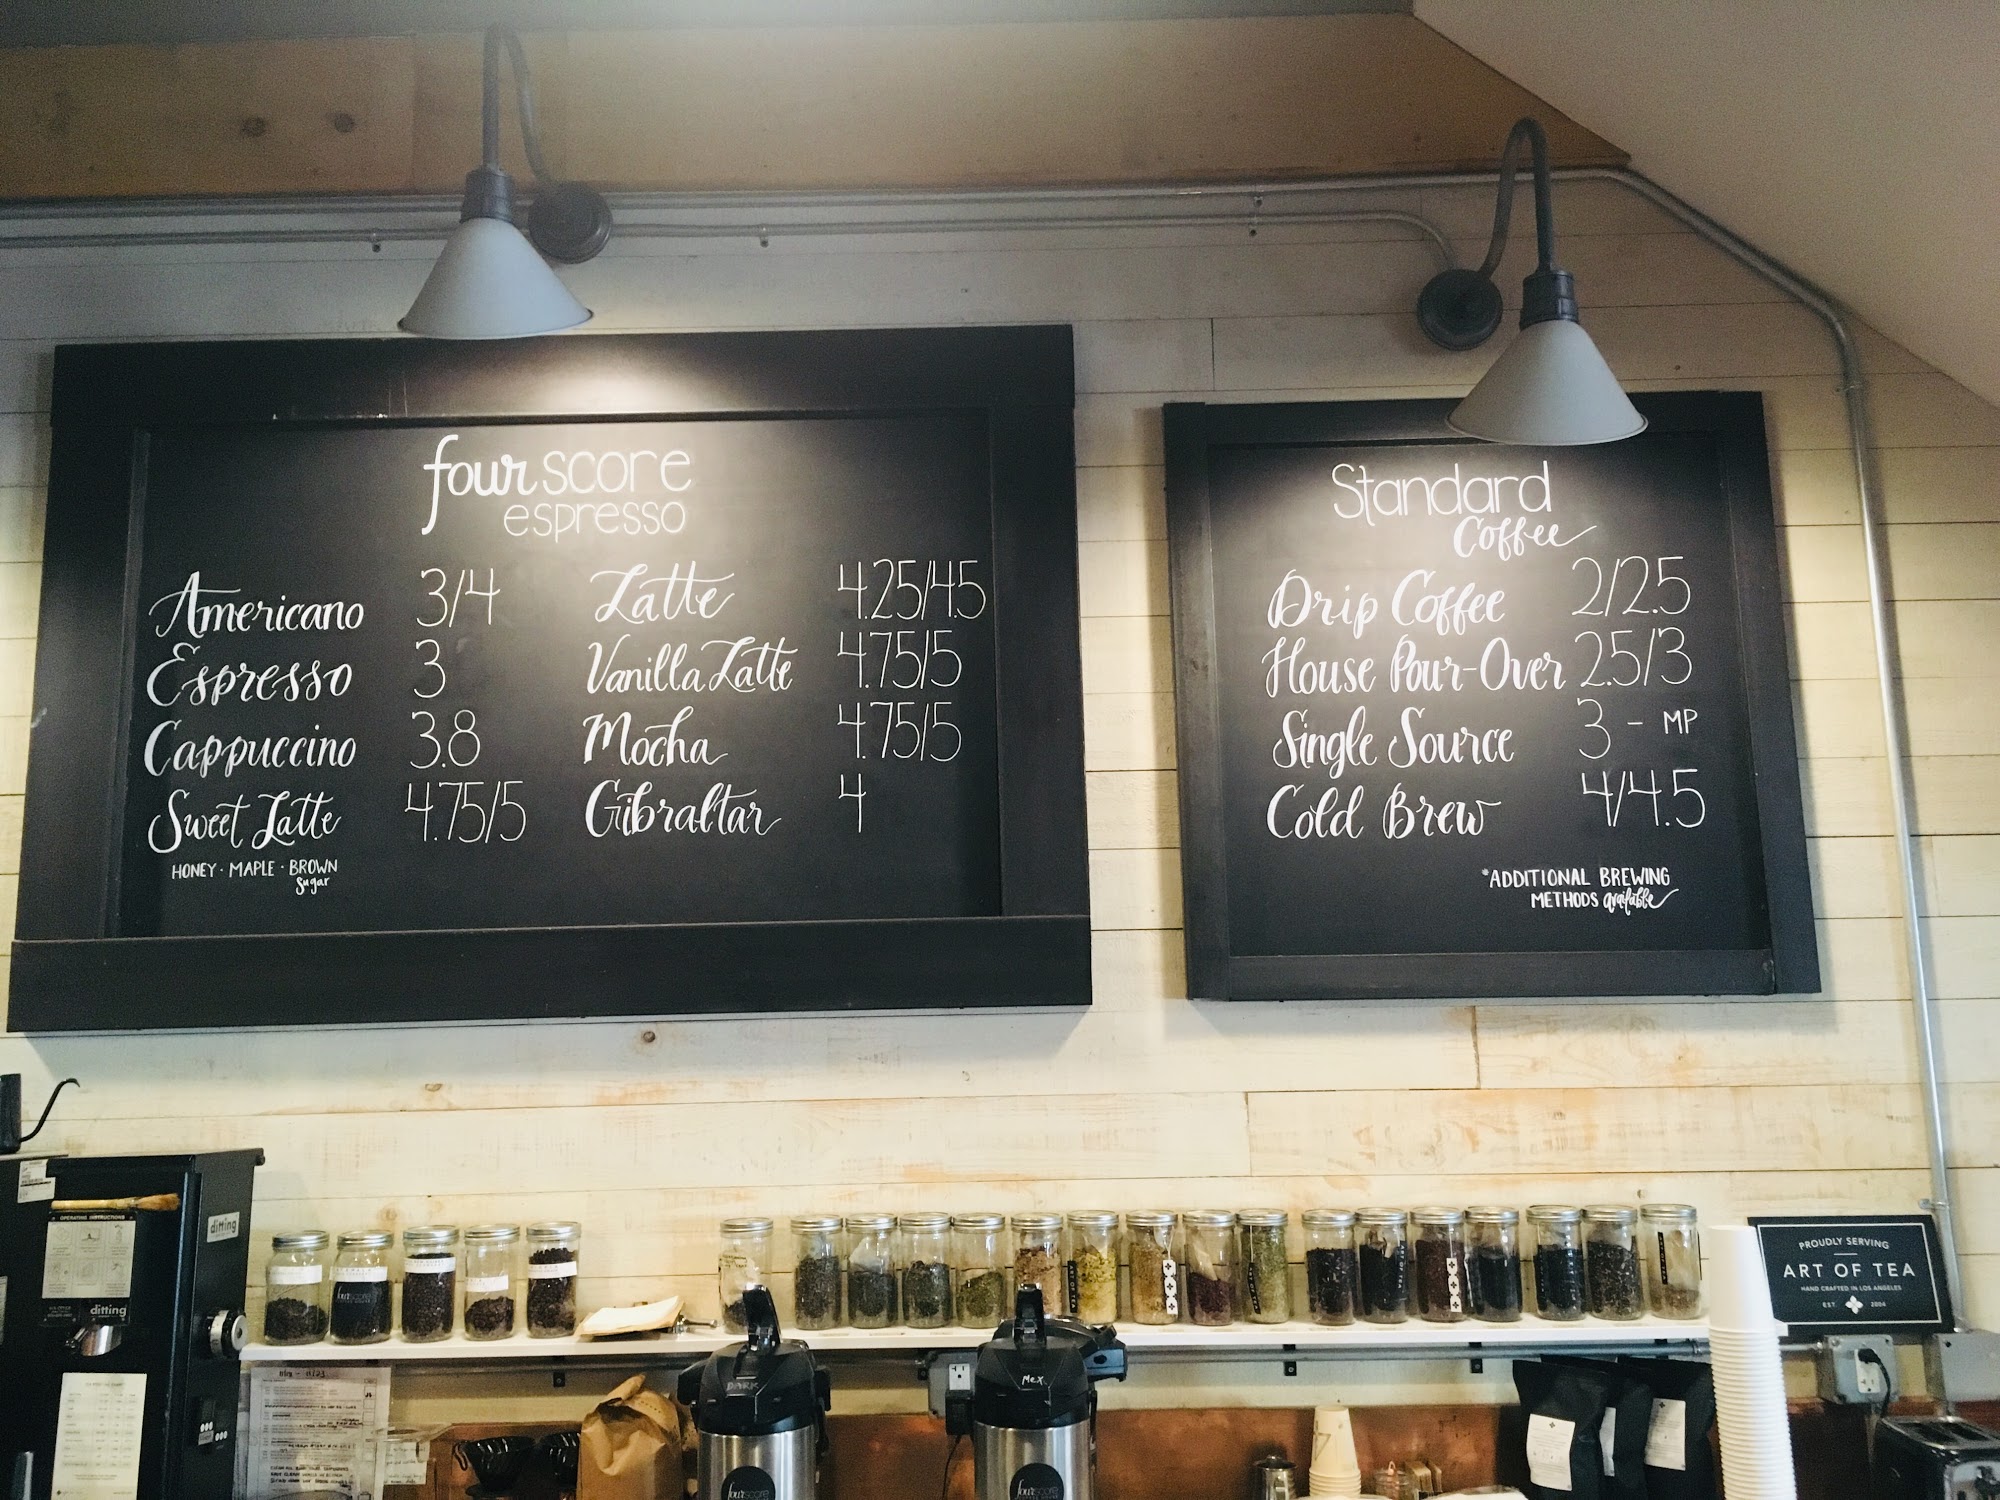 four score
espresso
Americano 3/4
Espresso 3
Cappuccino 3.8
Sweet Latte 4.75/5
HONEY · MAPLE · BROWN
sugar
Latte 4.25/4.5
Vanilla Latte 4.75/5
Mocha 4.75/5
Gibraltar 4
Standard
Coffee
Drip Coffee 2/2.5
House Pour-Over 2.5/3
Single Source 3 - MP
Cold Brew 4/4.5
*ADDITIONAL BREWING
METHODS available
ditting
OPERATING INSTRUCTIONS
ditting
fourscore
PROUDLY SERVING
ART OF TEA
HAND CRAFTED IN LOS ANGELES
EST. 2004
DARK
Mex
fourscore
fourscore